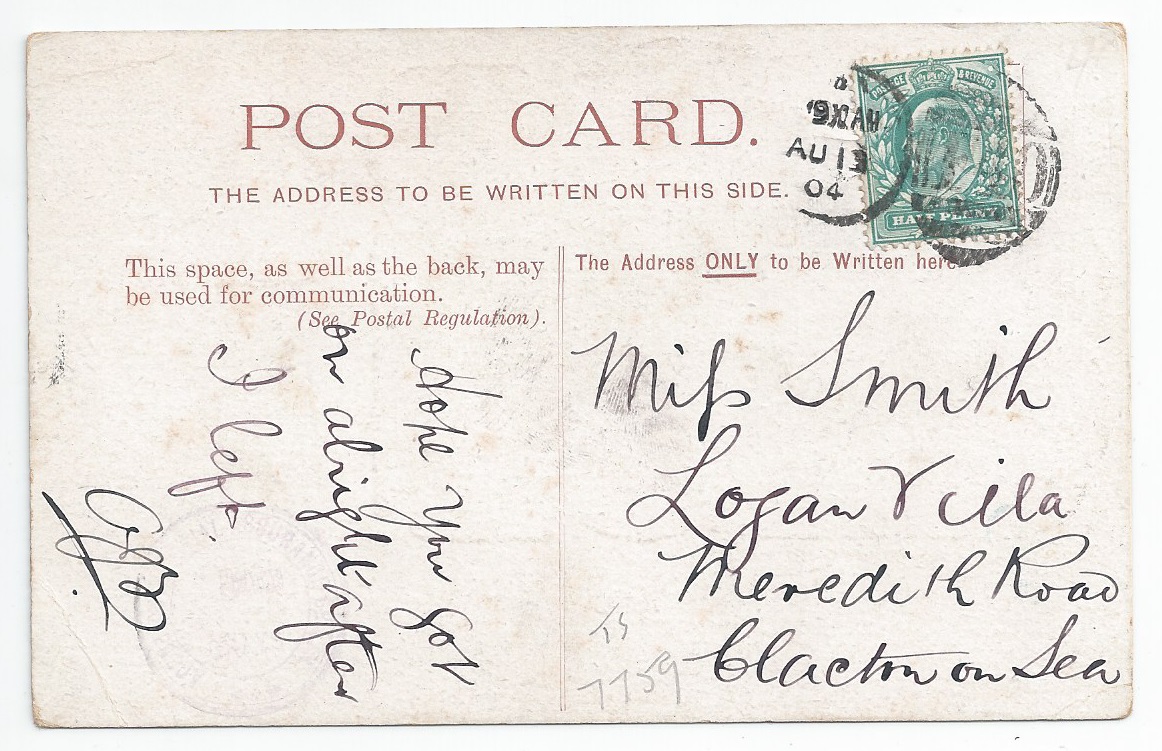 POST CARD.
THE ADDRESS TO BE WRITTEN ON THIS SIDE.
POSTAGE & REVENUE
HALF PENNY
AU 13
04
This space, as well as the back, may
be used for communication.
(See Postal Regulation).
The Address ONLY to be Written here
Hope you got
on alright after
I left.
Miss Smith
Logan Villa
Meredith Road
Clacton on Sea
7759